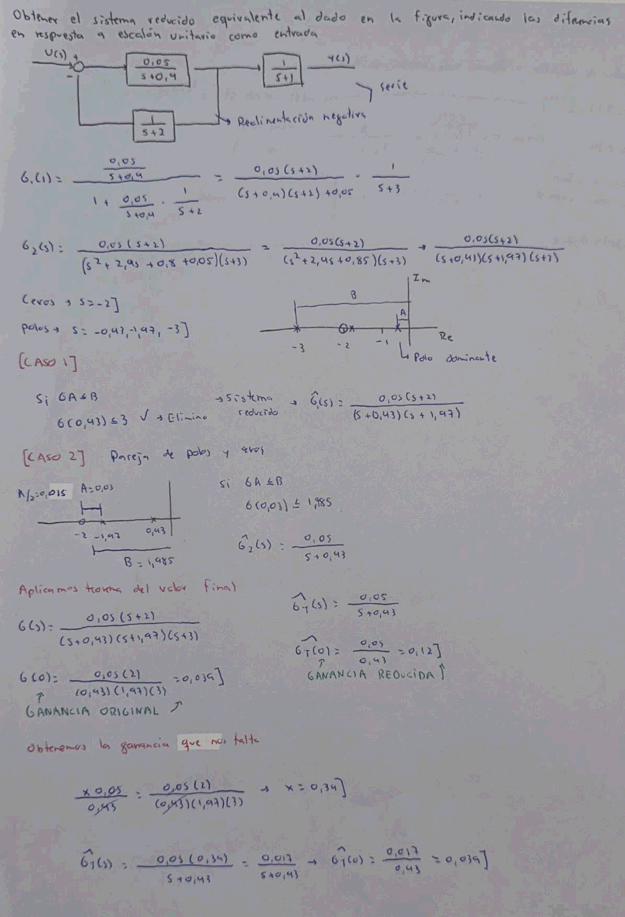 Obtener el sistema reducido equivalente al dado en la figura, indicando las diferencias
en respuesta a escalón unitario como entrada
U(s) + - 0,05/(s+0,4) 1/(s+1) Y(s)
serie
1/(s+2) → Realimentación negativa
G₁(1) = (0,05/(s+0,4))/(1 + 0,05/(s+0,4) · 1/(s+2)) = 0,05(s+2)/((s+0,4)(s+2)+0,05) · 1/(s+3)
G₂(s) = 0,05(s+2)/((s²+2,4s+0,8+0,05)(s+3)) = 0,05(s+2)/((s²+2,4s+0,85)(s+3)) → 0,05(s+2)/((s+0,43)(s+1,97)(s+3))
Ceros → s=-2]
Polos → s = -0,43, -1,97, -3]
Im
B
A
-3 -2 -1 Re
Polo dominante
[CASO 1]
Si 6A ≤ B
6(0,43) ≤ 3 ✓ → Elimino
→ Sistema reducido → Ĝ₁(s) = 0,05(s+2)/((s+0,43)(s+1,97))
[CASO 2] Pareja de polos y ceros
A/2=0,015 A=0,03
-2 -1,97 0,43
B = 1,985
si 6A ≤ B
6(0,03) ≤ 1,985
Ĝ₂(s) = 0,05/(s+0,43)
Aplicamos teorema del valor final
G(s) = 0,05(s+2)/((s+0,43)(s+1,97)(s+3))
G(0) = 0,05(2)/((0,43)(1,97)(3)) = 0,039]
GANANCIA ORIGINAL
Ĝ_T(s) = 0,05/(s+0,43)
Ĝ_T(0) = 0,05/0,43 = 0,12]
GANANCIA REDUCIDA
Obtenemos la ganancia que nos falta
x 0,05/0,43 = 0,05(2)/((0,43)(1,97)(3)) → x = 0,34]
Ĝ_T(s) = 0,05(0,34)/(s+0,43) = 0,017/(s+0,43) → Ĝ_T(0) = 0,017/0,43 = 0,039]